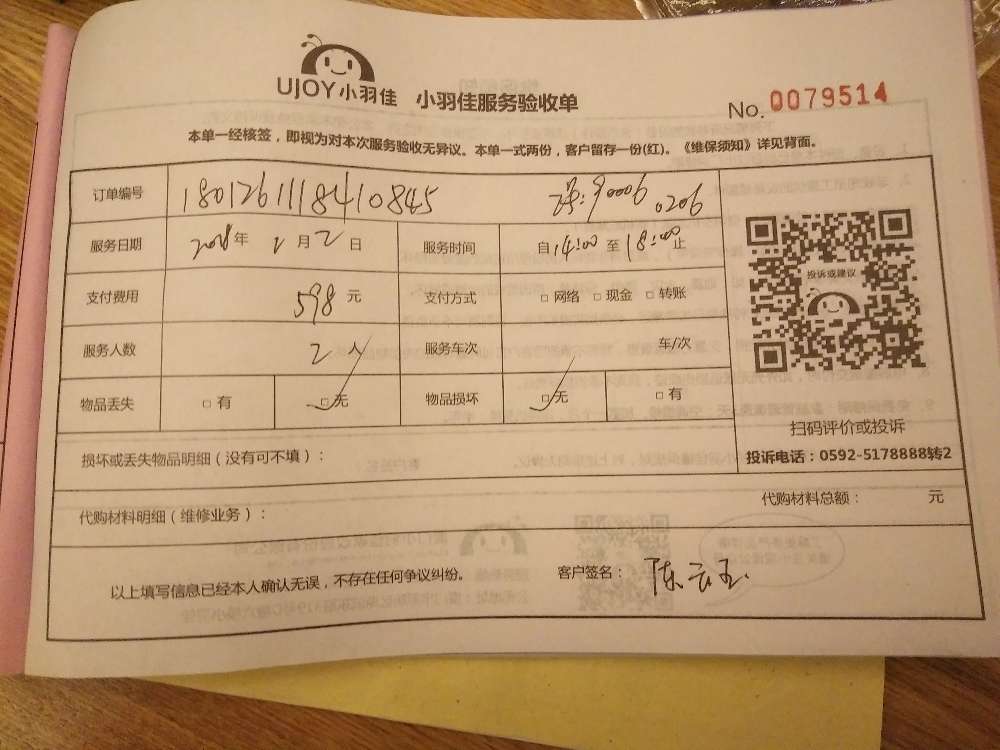 UJOY小羽佳 小羽佳服务验收单 No. 0079514
本单一经核签，即视为对本次服务验收无异议。本单一式两份，客户留存一份(红)。《维保须知》详见背面。
订单编号 1801261118410845 90006 0206
服务日期 2018年 2月2日 服务时间 自14:00至18:00止
支付费用 598元 支付方式 □网络 □现金 □转账
服务人数 2人 服务车次 车/次
物品丢失 □有 □无 物品损坏 □无 □有
损坏或丢失物品明细（没有可不填）：
投诉或建议
扫码评价或投诉
投诉电话：0592-5178888转2
代购材料明细（维修业务）： 代购材料总额： 元
以上填写信息已经本人确认无误，不存在任何争议纠纷。 客户签名： 陈云玉